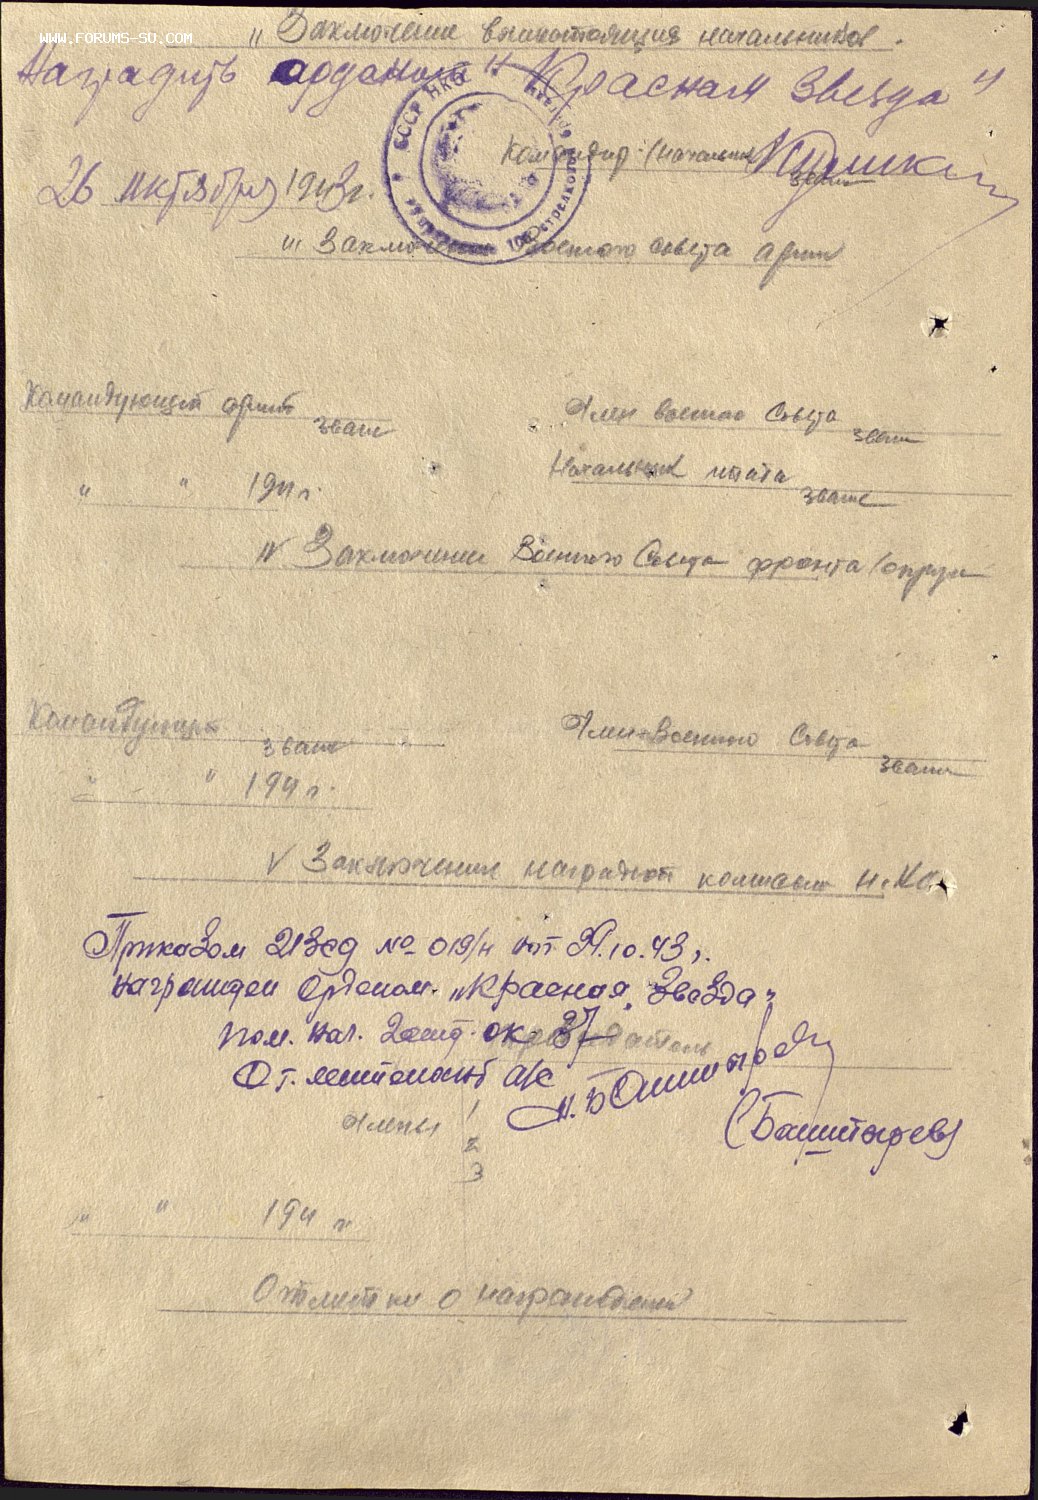 WWW.FORUMS-SU.COM
" Заключение вышестоящих начальников.
Наградить орденом "Красная звезда"
СССР НКО
Командир (начальник)
звание
26 октября 1943г.
III Заключение Военного совета армии
Командующий армией
звание
Член военного Совета
звание
Начальник штата
звание
" " 194 г.
IV Заключение Военного Совета фронта (округа
Командующий
звание
Член Военного Совета
звание
" " 194 г.
V Заключение наградной комиссии Н.КО.
Приказом 213сд № 019/н от .10.43 г.
награжден Орденом "Красная Звезда"
пом. нач. 2 отд. ОК 37
Ст. лейтенант а/с
Председатель
(Башпорев)
Члены 1
2
3
" " 194 г.
Отметки о награждении